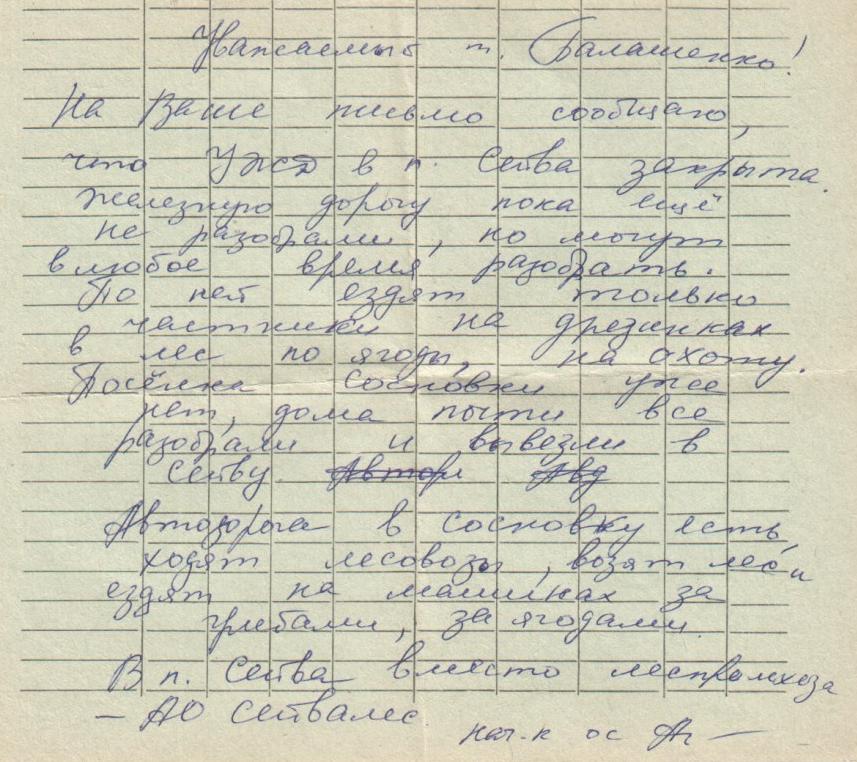 Уважаемый т. Балашенко!
На Ваше письмо сообщаю,
что УЖД в п. Сейва закрыта.
Железную дорогу пока ещё
не разобрали, но могут
в любое время разобрать.
По ней ездят только
частники на дрезинках
в лес по ягоды, на охоту.
Посёлка Сосновки уже
нет, дома почти все
разобрали и вывезли в
Сейву.
Автодорога в Сосновку есть,
ходят лесовозы, возят лес и
ездят на машинах за
грибами, за ягодами.
В п. Сейва вместо леспромхоза
– АО Сейвалес
нач-к ос